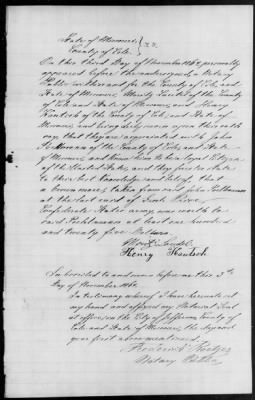 State of Missouri
County of Cole } S.S.
On this third day of November 1862 personally
appeared before the undersigned, a Notary
Public within and for the County of Cole and
State of Missouri, of the County
of Cole and State of Missouri and Henry
Kautsch of the County of Cole and State of
Missouri, and being duly sworn upon their oath
say that they are acquainted with John
of the County of Cole and State
of Missouri and know him to be a loyal Citizen
of the United States, and they further state
to their best knowledge and belief, that
a brown mare, taken from said John
at the last raid of
Confederate States army was worth to
said at least one hundred
and twenty five Dollars.
Henry Kautsch
Subscribed to and sworn before me this 3rd
day of November 186
In testimony whereof I have hereunto set
my hand and affixed my Notarial Seal
at office, in the City of Jefferson County of
Cole and State of Missouri, the day and
year first above mentioned.
Frederick
Notary Public